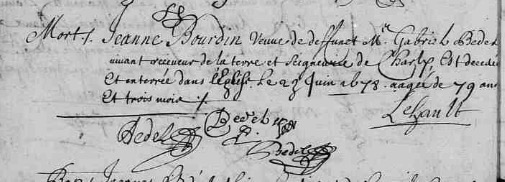 Mort /. Jeanne Bourdin Veuve de deffunct Mr. Gabriel Bedel
vivant receveur de la terre et seigneurie de Charly Est decedee
Et enterrée dans l'Eglise Le 29 Juin 1678. aagée de 79 ans
Et trois mois /.
Bedel Bedel
Bedel